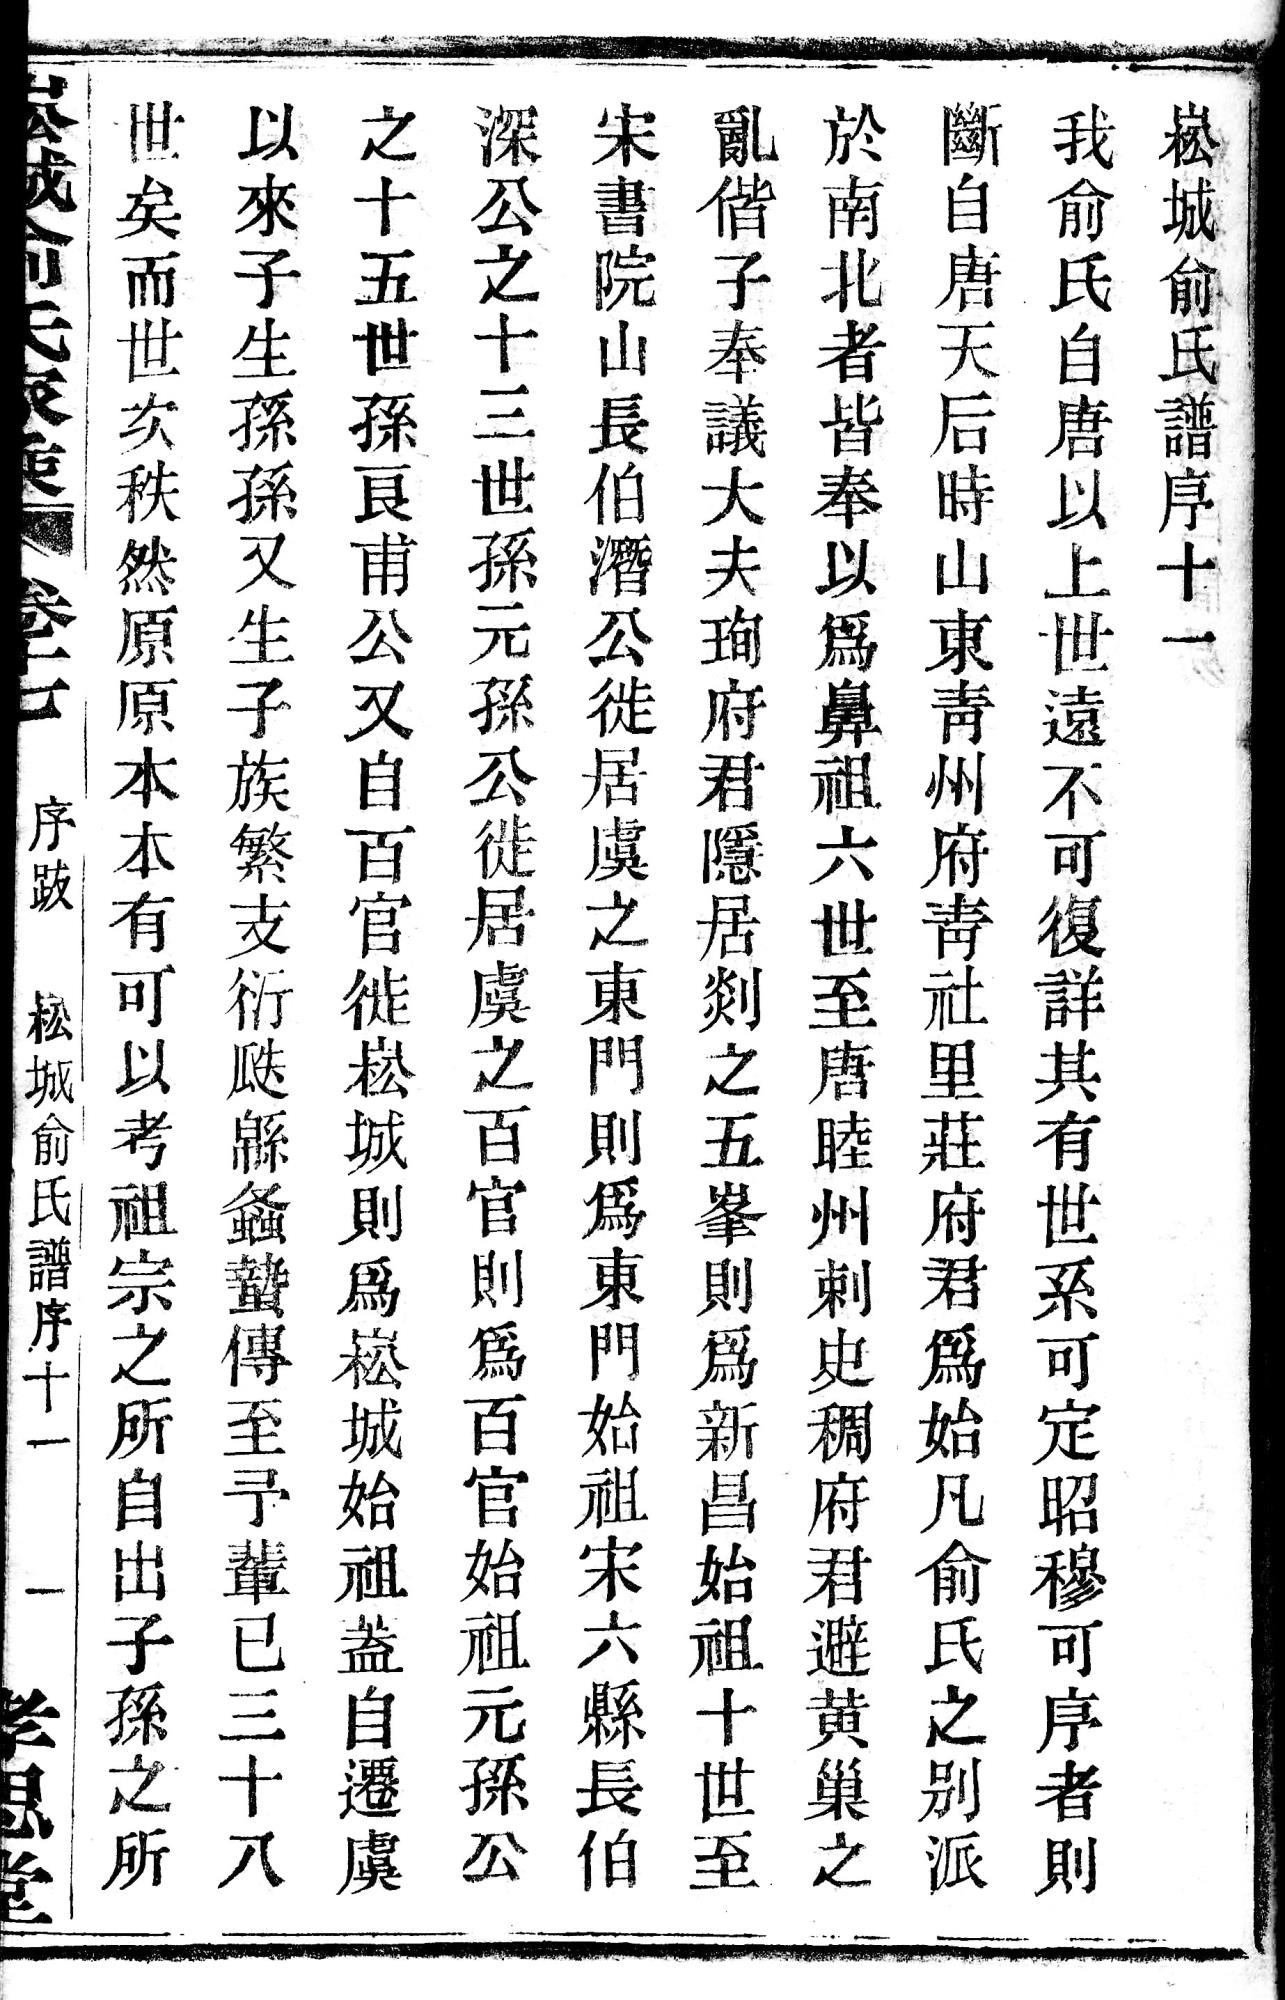 崧城俞氏譜序十一
我俞氏自唐以上世遠不可復詳其有世系可定昭穆可序者則
斷自唐天后時山東靑州府靑社里莊府君爲始凡俞氏之別派
於南北者皆奉以爲鼻祖六世至唐睦州刺史稠府君避黃巢之
亂偕子奉議大夫珣府君隱居剡之五峯則爲新昌始祖十世至
宋書院山長伯潛公徙居虞之東門則爲東門始祖宋六縣長伯
深公之十三世孫元孫公徙居虞之百官則爲百官始祖元孫公
之十五世孫艮甫公又自百官徙崧城則爲崧城始祖葢自遷虞
以來子生孫孫又生子族繁支衍瓞緜螽蟄傳至予輩已三十八
世矣而世次秩然原原本本有可以考祖宗之所自出子孫之所
崧城俞氏家乘 卷十七 序跋 崧城俞氏譜序十一 一 孝思堂